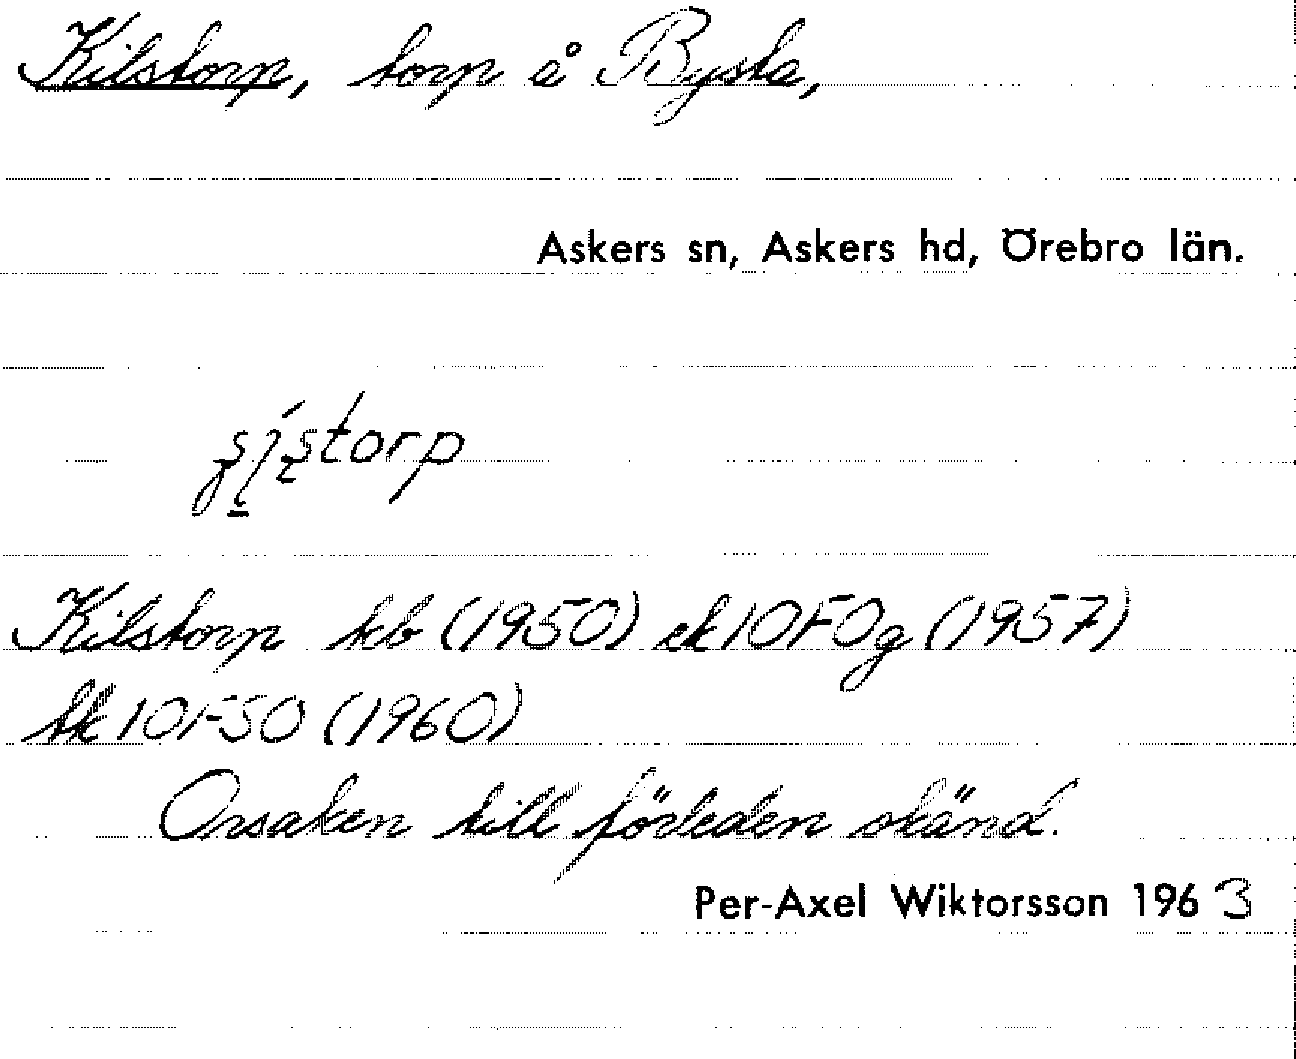 Kilstorp, torp å Bysta,
Askers sn, Askers hd, Örebro län.
Kilstorp kb (1950) ek 10F0g (1957)
tk 10F50 (1960)
Orsaken till förleden okänd.
Per-Axel Wiktorsson 1963